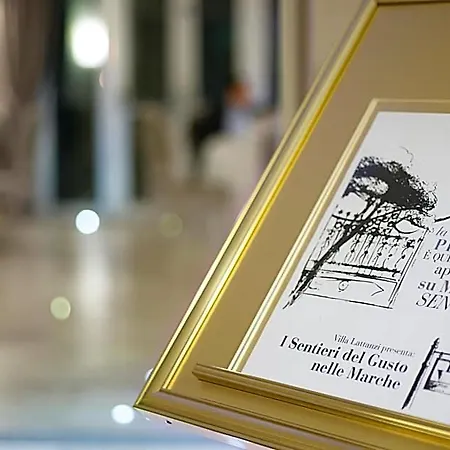 la
P
È QU
ap
su M
SEN
Villa Lattanzi presenta:
I Sentieri del Gusto
nelle Marche